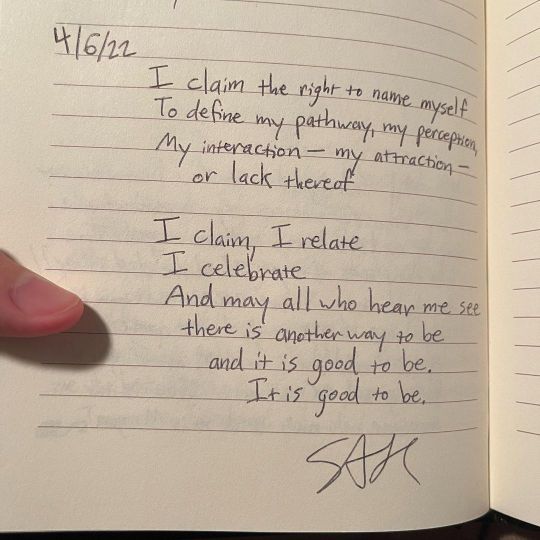 4/6/22
I claim the right to name myself
To define my pathway, my perception,
My interaction — my attraction —
or lack thereof
I claim, I relate
I celebrate
And may all who hear me see
there is another way to be
and it is good to be.
It is good to be.
SAH